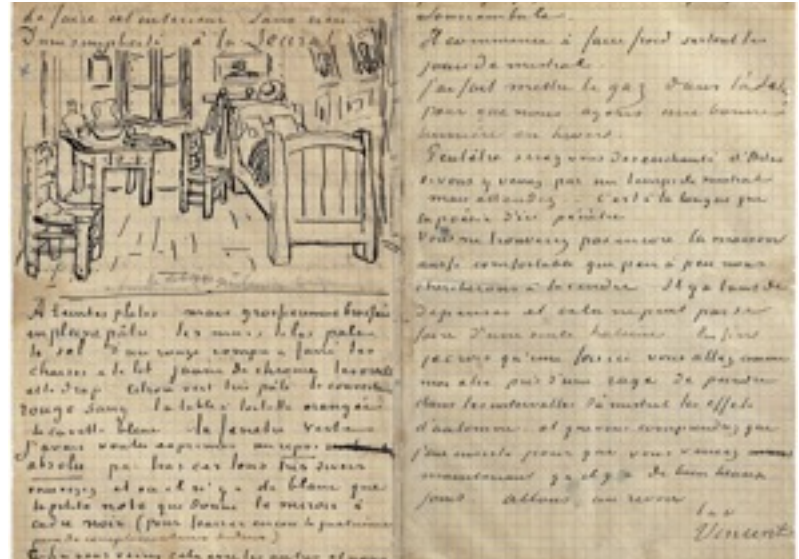 de faire cet interieur sans rien
D'une simplicité à la Seurat
À teintes plates mais grossierement brossées
en pleine pâte les murs lilas pale
le sol d'un rouge rompu & fané les
chaises & le lit jaune de chrome les oreillers
et le drap citron vert très pâle la couverture
rouge sang la table à toilette orangée
la cuvette bleue la fenetre verte
J'avais voulu exprimer un repos
absolu par tous ces tons très divers
vous voyez et où il n'y a de blanc que
la petite note que donne le miroir à
cadre noir (pour fourrer encore la quatrième
paire de complémentaires dedans)
Enfin vous verrez cela avec les autres et nous
somnambule.
Il commence à faire froid surtout les
jours de mistral.
J'ai fait mettre le gaz dans
pour que nous ayons une bonne
lumière en hiver.
Peutêtre serez vous desenchanté d'Arles
si vous y venez par un temps de mistral
mais attendez.. C'est à la longue que
la poésie d'ici pénètre.
Vous ne trouverez pas encore la maison
aussi comfortable que peu à peu nous
chercherons à la rendre. Il y a tant de
depenses et cela ne peut pas se
faire d'une seule haleine. Enfin
je crois qu'une fois ici vous allez comme
moi etre pris d'une rage de peindre
dans les intervalles du mistral les effets
d'automne. et que vous comprendrez que
j'insiste pour que vous veniez
maintenant qu'il y a de bien beaux
jours. allons, au revoir
Vincent